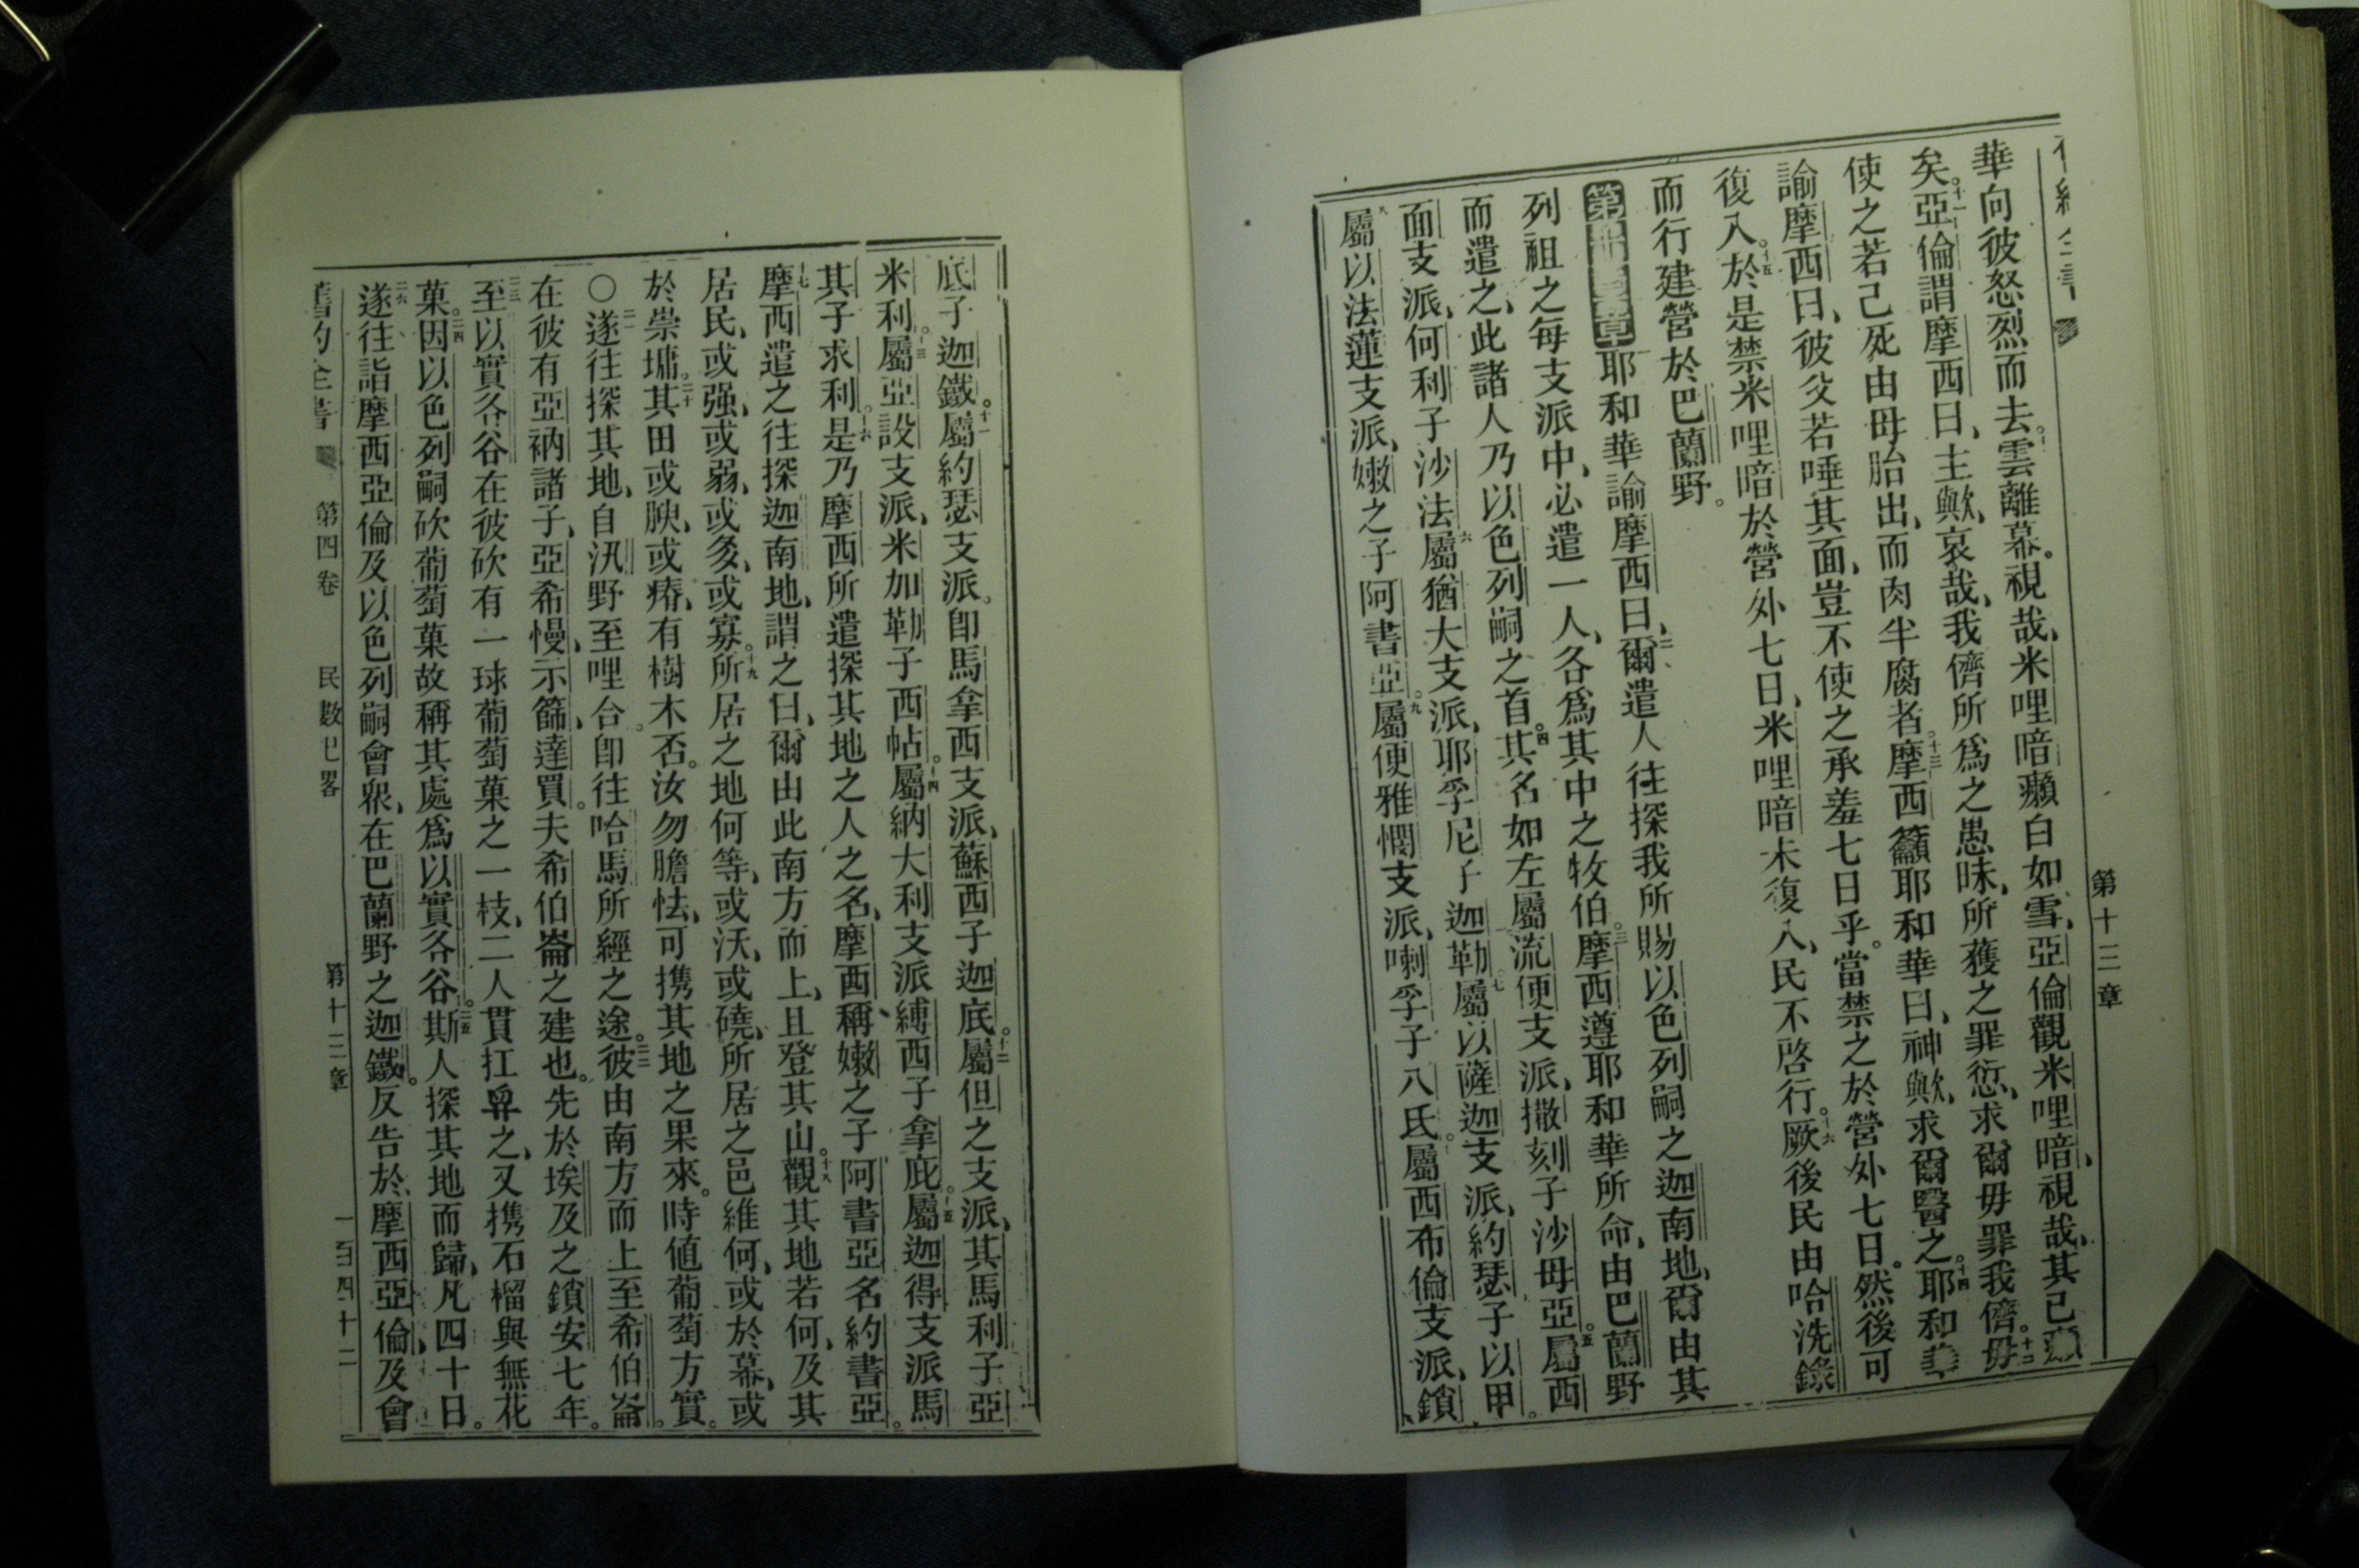 第十三章
華向彼怒烈而去。雲離幕。視哉、米哩暗癩白如雪、亞倫觀米哩暗、視哉、其已癩
矣。十一亞倫謂摩西曰、主歟、哀哉、我儕所爲之愚昧、所獲之罪愆、求爾毋罪我儕。十二毋
使之若己死由母胎出、而肉半腐者。十三摩西籲耶和華曰、神歟、求爾醫之。十四耶和華
諭摩西曰、彼父若唾其面、豈不使之承羞七日乎。當禁之於營外七日。然後可
復入。十五於是禁米哩暗於營外七日、米哩暗未復入、民不啓行。十六厥後民由哈洗錄
而行建營於巴蘭野。
第十三章耶和華諭摩西曰、二爾遣人往探我所賜以色列嗣之迦南地、爾由其
列祖之每支派中、必遣一人、各爲其中之牧伯。三摩西遵耶和華所命、由巴蘭野
而遣之、此諸人乃以色列嗣之首。四其名如左屬流便支派、撒刻子沙毋亞。五屬西
面支派、何利子沙法六屬猶大支派、耶孚尼子迦勒七屬以薩迦支派、約瑟子以甲。
八屬以法蓮支派、嫩之子阿書亞。九屬便雅憫支派、喇孚子八氐。十屬西布倫支派、鎖
底子迦鐵。十一屬約瑟支派。卽馬拿西支派、蘇西子迦底。十二屬但之支派、其馬利子亞
米利。十三屬亞設支派、米加勒子西帖。十四屬納大利支派、縛西子拿庇。十五屬迦得支派馬
其子求利。十六是乃摩西所遣探其地之人之名、摩西稱嫩之子阿書亞名約書亞。
十七摩西遣之往探迦南地、謂之曰、爾由此南方而上、且登其山。十八觀其地若何、及其
居民、或强、或弱、或多、或寡。十九所居之地何等、或沃、或磽、所居之邑維何、或於幕、或
於崇墉。二十其田或腴、或瘠、有樹木否。汝勿膽怯、可携其地之果來。時値葡萄方實。
〇二一遂往探其地、自汛野至哩合。卽往哈馬所經之途。二二彼由南方而上至希伯崙。
在彼有亞衲諸子、亞希慢、示篩、達買。夫希伯崙之建也。先於埃及之鎖安七年。
二三至以實各谷在彼砍有一球葡萄菓之一枝、二人貫扛舁之、又携石榴與無花
菓。二四因以色列嗣砍葡萄菓故稱其處爲以實各谷。二五斯人探其地而歸、凡四十日。
二六遂往詣摩西亞倫及以色列嗣會衆、在巴蘭野之迦鐵。反告於摩西亞倫、及會
第四卷 民數 畧 第十三章 一百四十二